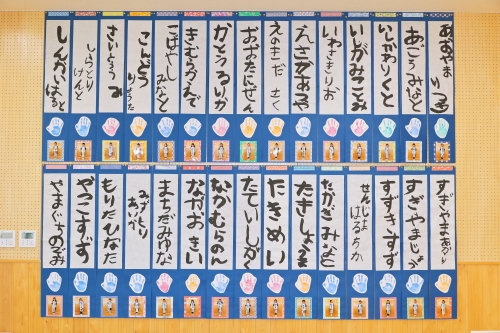 あごうみなと
いしかわりくと
いしがみこころ
いわさきりお
えさかあつや
えのきだ さく
おおたにぜん
かとうるりか
きむらかえで
こばやし みなと
こんどう りょうた
さいとう るみ
しらとり けんと
すぎやまあかり
すぎやまじょう
すずきすず
せんじょ はるちか
たかぎみなと
たきめい
たていしがく
なかむらのん
ながおきい
まちだみゆな
みずとり あいべ
もりたひなた
やつこすず
やまぐちのぞみ